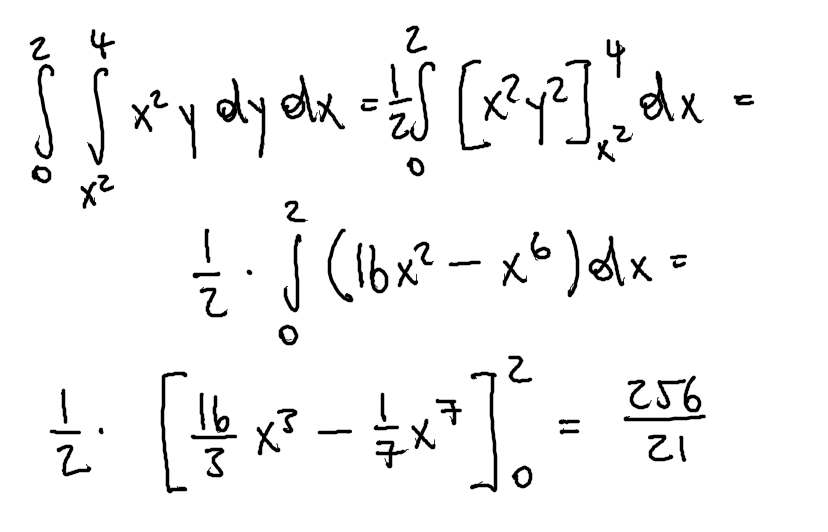 ∫₀² ∫ₓ²⁴ x² y dy dx = 1/2 ∫₀² [x² y²]ₓ²⁴ dx =
1/2 · ∫₀² (16x² − x⁶) dx =
1/2 · [16/3 x³ − 1/7 x⁷]₀² = 256/21